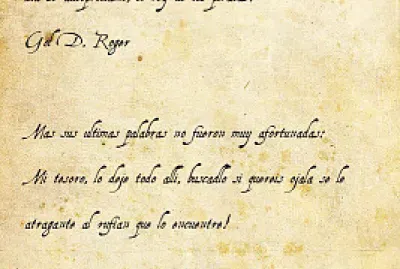 rey de los piratas:
Gol D. Roger
Mas sus ultimas palabras no fueron muy afortunadas:
Mi tesoro, lo deje todo alli, buscadlo si quereis ojala se le
atragante al rufian que lo encuentre!